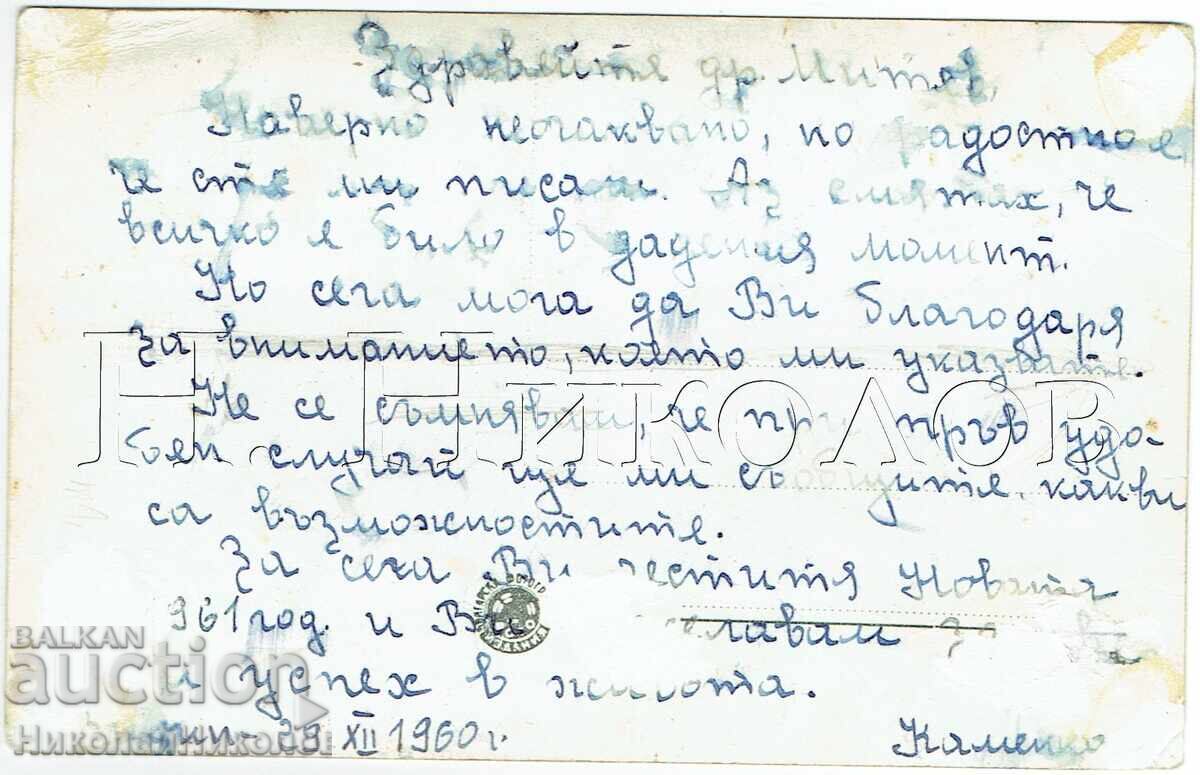 Здравейте др. Митев,
Наверно неочаквано, но радостно е
че сте ми писали. Аз смятах, че
всичко е било в дадения момент.
Но сега мога да Ви благодаря
за вниманието, което ми указвате.
Не се съмнявам, че при пръв удо-
бен случай ще ми съобщите, какви
са възможностите.
За сега Ви честитя Новата
961 год. и Ви
и успех в живота.
29 XII 1960 г.
Н. НИКОЛОВ
BALKAN
auction